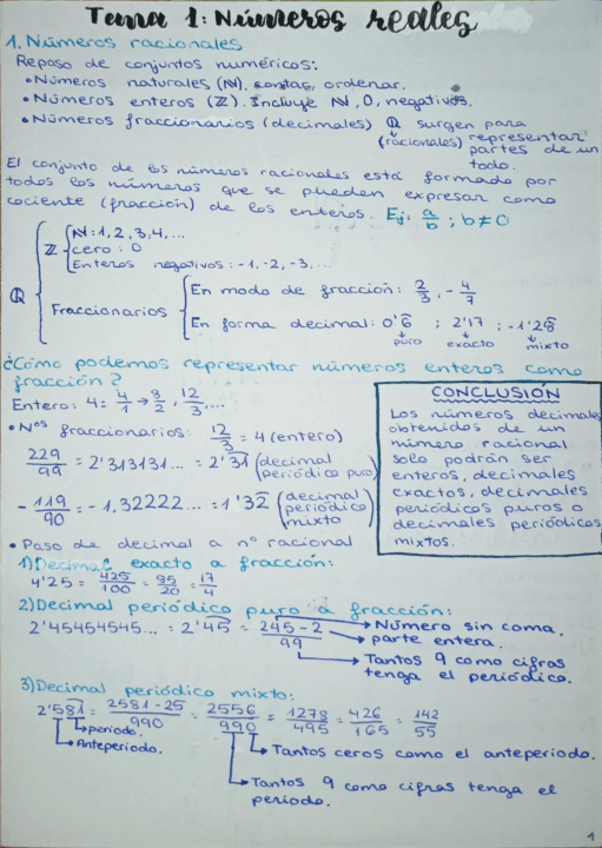 Tema 1: Números reales
1. Números racionales
Repaso de conjuntos numéricos:
• Números naturales (ℕ). contar, ordenar.
• Números enteros (ℤ). Incluye ℕ, 0, negativos.
• Números fraccionarios (decimales) ℚ surgen para
(racionales) representar
partes de un
todo.
El conjunto de los números racionales está formado por
todos los números que se pueden expresar como
cociente (fracción) de los enteros. Ej: a/b ; b≠0
ℚ { ℤ { ℕ: 1, 2, 3, 4, ...
cero: 0
Enteros negativos: -1, -2, -3, ...
Fraccionarios { En modo de fracción: 2/3, -4/7
En forma decimal: 0'6̂ ; 2'17 ; -1'28̂
puro exacto mixto
¿Cómo podemos representar números enteros como
fracción?
Entero: 4 = 4/1 → 8/2, 12/3, ...
• Nos fraccionarios: 12/3 = 4 (entero)
229/99 = 2'313131... = 2'31̂ (decimal
periódico puro)
-119/90 = -1,32222... = 1'32̂ (decimal
periódico
mixto)
CONCLUSIÓN
Los números decimales
obtenidos de un
número racional
solo podrán ser
enteros, decimales
exactos, decimales
periódicos puros o
decimales periódicos
mixtos.
• Paso de decimal a nº racional
1) Decimal exacto a fracción:
4'25 = 425/100 = 85/20 = 17/4
2) Decimal periódico puro a fracción:
2'45454545... = 2'45̂ = 245-2/99 → Número sin coma.
→ parte entera.
→ Tantos 9 como cifras
tenga el periódico.
3) Decimal periódico mixto:
2'581̂ = 2581-25/990 = 2556/990 = 1278/495 = 426/165 = 142/55
→ periodo.
→ Anteperiodo.
→ Tantos ceros como el anteperiodo.
→ Tantos 9 como cifras tenga el
periodo.
1